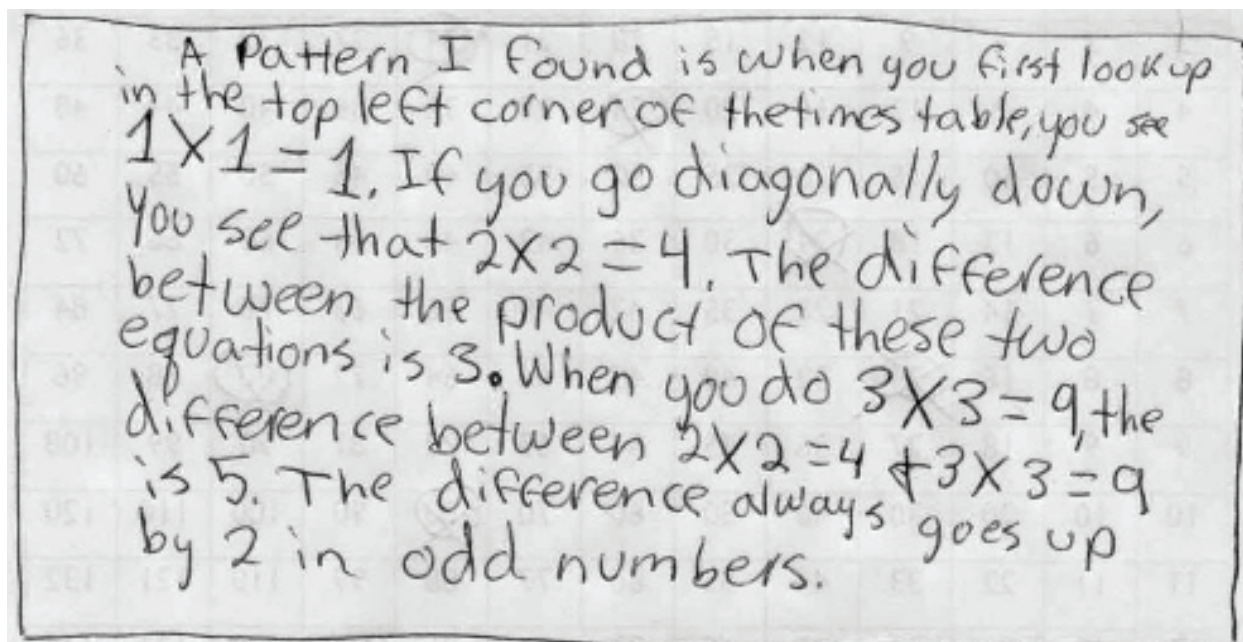 A Pattern I found is when you first look up
in the top left corner of the times table, you see
1X1=1. If you go diagonally down,
you see that 2X2=4. The difference
between the product of these two
equations is 3. When you do 3X3=9, the
difference between 2X2=4 + 3X3=9
is 5. The difference always goes up
by 2 in odd numbers.